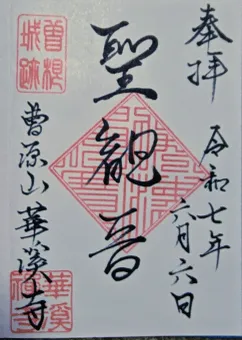 奉拝
令和七年
六月六日
聖観音
曽根城跡
曹源山 華溪寺
華溪